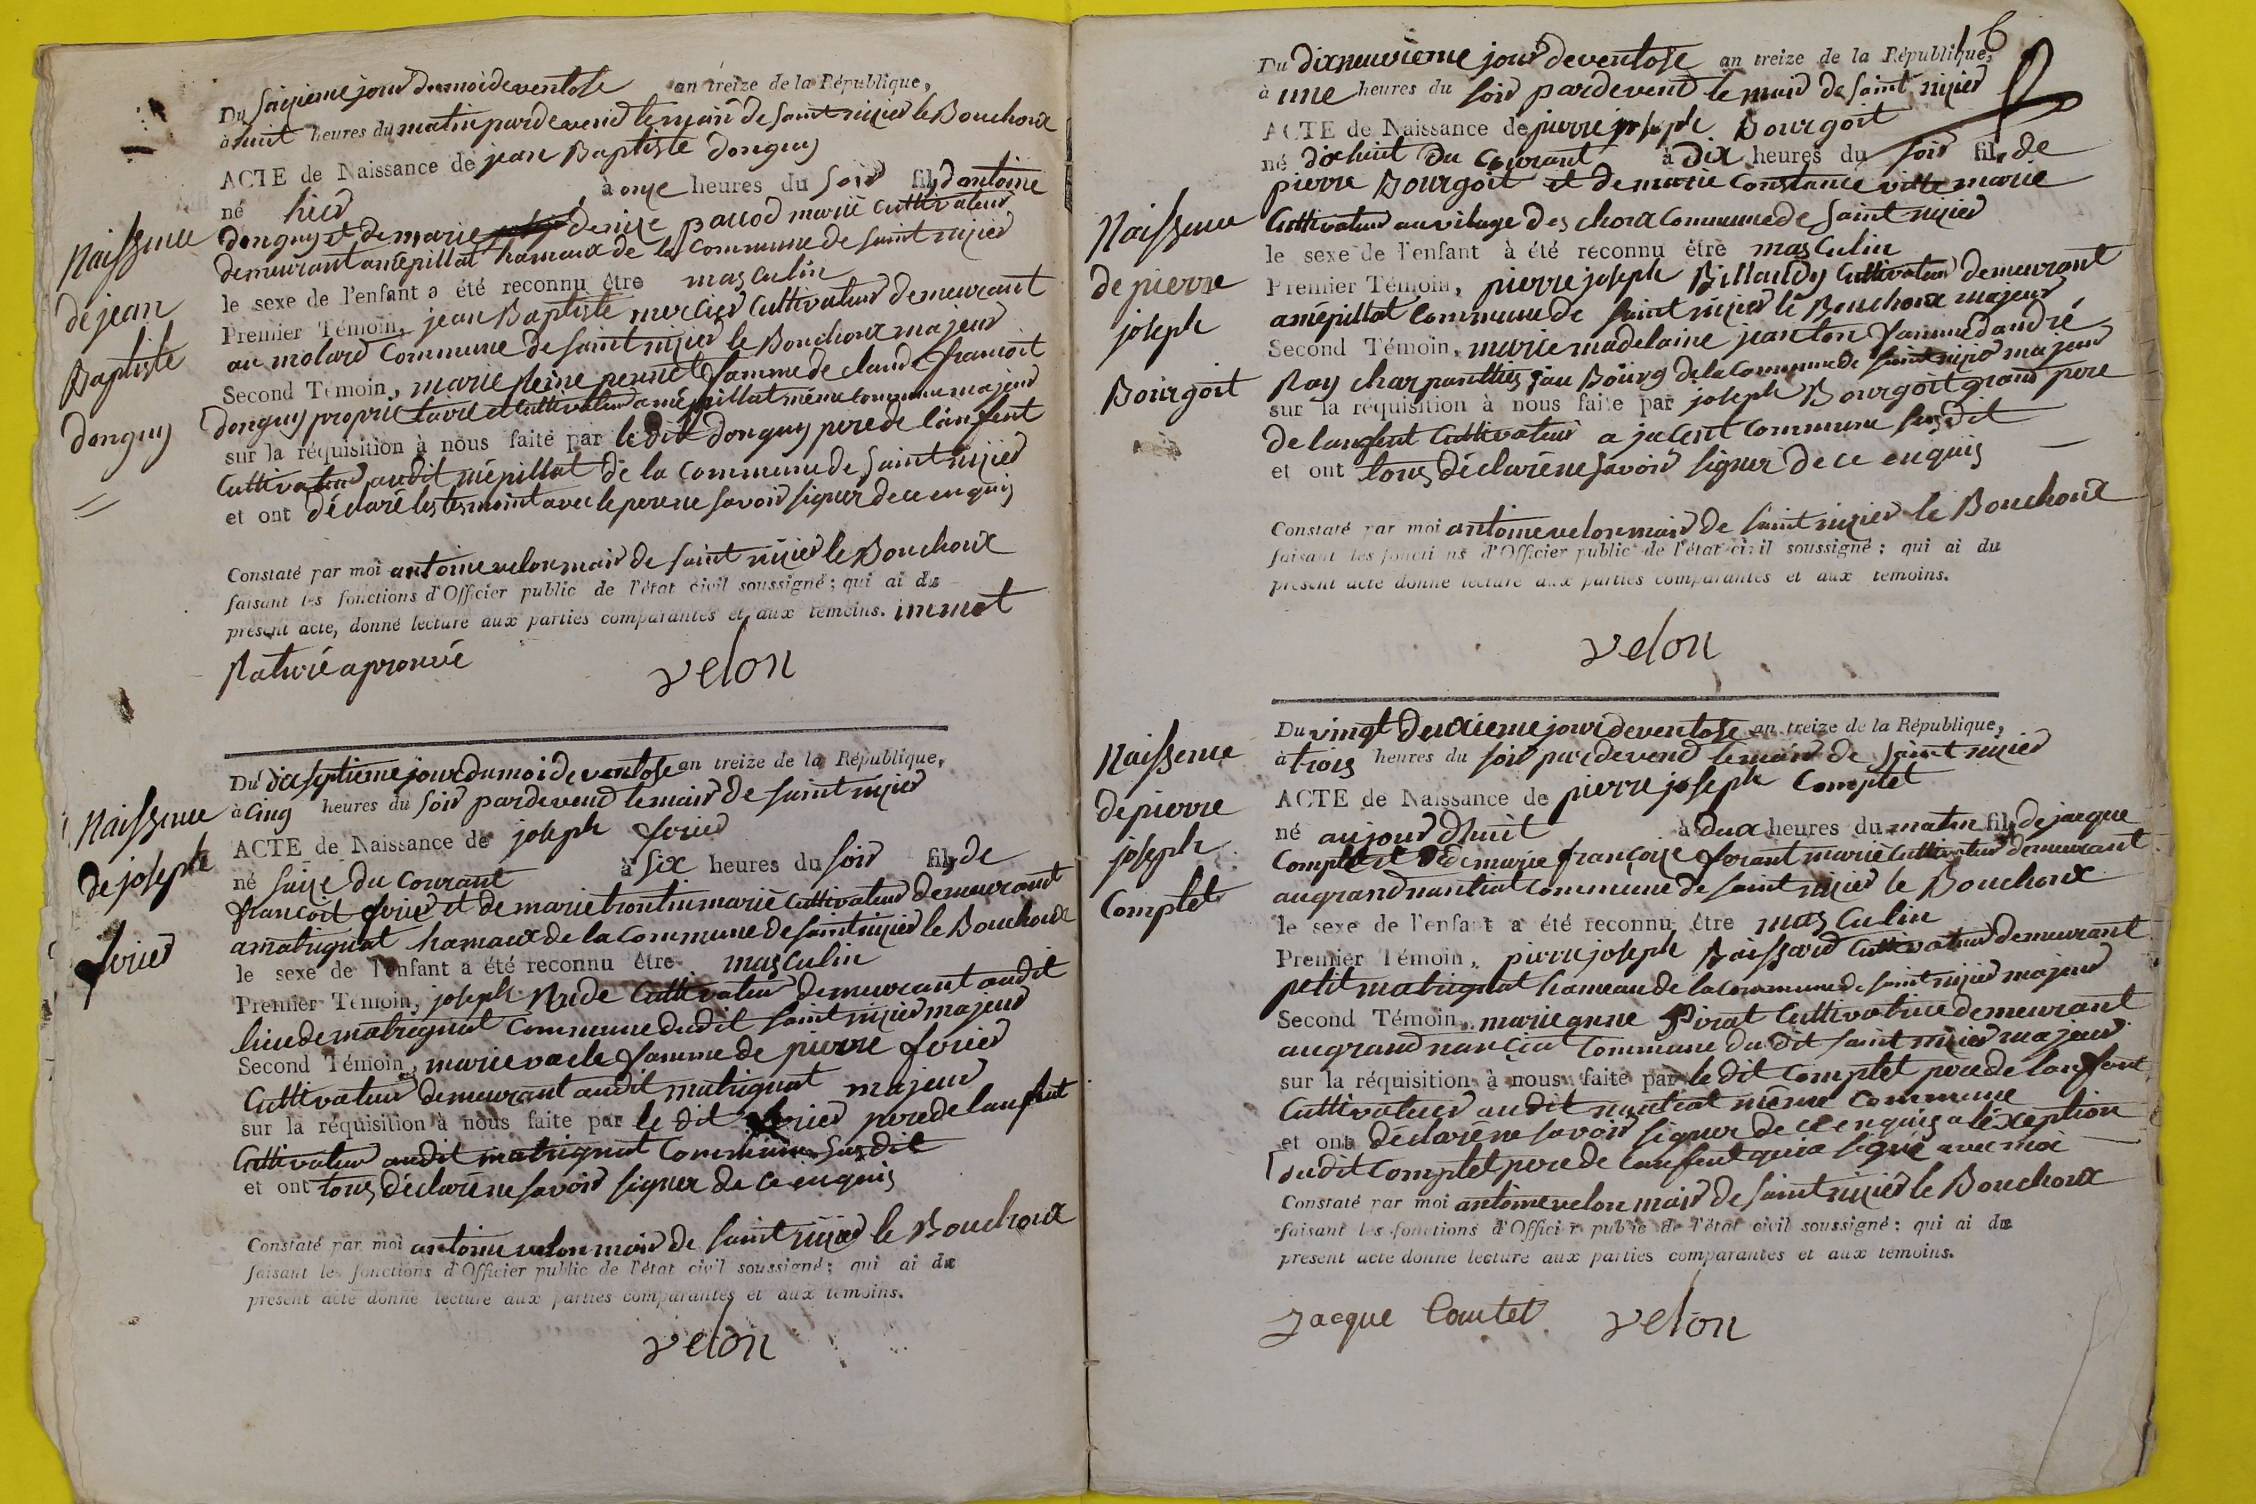 Naissance
de jean
Baptiste
donguy
Du saizieme jour du moi de ventose an treize de la République,
à huit heures du matin pardevend le mair de saint nizier le Bouchoux
ACTE de Naissance de jean Baptiste donguy
né hier à onze heures du soir fils d antoine
donguy et de marie denize pauod marié cultivateur
demeurant a mépillat hamaux de la commune de saint nizier
le sexe de l'enfant a été reconnu être masculin
Premier Témoin, jean Baptiste mercier cultivateur demeurant
au molard commune de saint nizier le Bouchoux majeur
Second Témoin, marie Reine pennet famme de claude francoit
donguy proprietaire et cultivateur a mépillat même commune majeur
sur la réquisition à nous faite par le dit donguy pere de lanfent
cultivateur audit mépillat de la commune de saint nizier
et ont déclaré les tesmoint avec le pere ne savoir signer de ce enquis
Constaté par moi antoine velon mair de saint nizier le Bouchoux
faisant les fonctions d'Officier public de l'état civil soussigné; qui ai du
présent acte, donné lecture aux parties comparantes et aux témoins. un mot
Raturé aprouvé
velon
Naissance
de joseph
forier
Du dix septieme jour du moi de ventose an treize de la République,
à cinq heures du soir pardevend le mair de saint nizier
ACTE de Naissance de joseph forier
né saize du courant à six heures du soir fils de
francoit forier et de marie trontin marié cultivateur demeurant
a matrignat hamaux de la commune de saint nizier le Bouchoux
le sexe de l'enfant a été reconnu être masculin
Premier Témoin, joseph Nride cultivateur demeurant audit
lieu de matrignat commune dudit saint nizier majeur
Second Témoin, marie vacle famme de pierre forier
Cultivateur demeurant audit matrignat majeur
sur la réquisition à nous faite par le dit forier pere de lanfent
Cultivateur audit matrignat commune susdit
et ont tous déclaré ne savoir signer de ce enquis
Constaté par moi antoine velon mair de saint nizier le Bouchoux
faisant les fonctions d'Officier public de l'état civil soussigné; qui ai du
présent acte donné lecture aux parties comparantes et aux témoins.
velon
6
Naissance
de pierre
joseph
Bourgoit
Du dixneuvieme jour de ventose an treize de la République,
à une heures du soir pardevent le mair de saint nizier
ACTE de Naissance de pierre joseph Bourgoit
né dixhuit du courant à dix heures du soir fils de
pierre Bourgoit et de marie constance ville marié
Cultivateur au vilage des choux commune de saint nizier
le sexe de l'enfant à été reconnu être masculin
Premier Témoin, pierre joseph Billaudy Cultivateur demeurant
a mépillat commune de saint nizier le Bouchoux majeur
Second Témoin, marie madelaine jeanton famme d andré
Ray charpanttier au Bourg de la commune de saint nizier majeur
sur la réquisition à nous faite par joseph Bourgoit grand pere
de lanfent cultivateur a jacent commune susdit
et ont tous déclaré ne savoir signer de ce enquis
Constaté par moi antoine velon mair de saint nizier le Bouchoux
faisant les fonctions d'Officier public de l'état civil soussigné; qui ai du
présent acte donné lecture aux parties comparantes et aux témoins.
velon
Naissance
de pierre
joseph
Complet
Du vingt deuxieme jour de ventose an treize de la République,
à trois heures du soir pardevend le mair de saint nizier
ACTE de Naissance de pierre joseph Complet
né aujour dhuit à deux heures du matin fils de jacque
Complet et de marie françoize forant marié cultivateur demeurant
au grand nantiat commune de saint nizier le Bouchoux
le sexe de l'enfant a été reconnu être masculin
Premier Témoin, pierre joseph Raissard Cultivateur demeurant
petit matrignat hameau de la commune de saint nizier majeur
Second Témoin, marie anne Pirat Cultivatrice demeurant
au grand nanciat commune dudit saint nizier majeur
sur la réquisition à nous faite par le dit Complet pere de lanfant
Cultivateur audit nantiat même commune
et ont déclaré ne savoir signer de ce enquis a léxeption
dudit Complet pere de lanfent qui a signé avec moi
Constaté par moi antoine velon mair de saint nizier le Bouchoux
faisant les fonctions d'Officier public de l'état civil soussigné; qui ai du
présent acte donné lecture aux parties comparantes et aux témoins.
Jacque Comtet velon